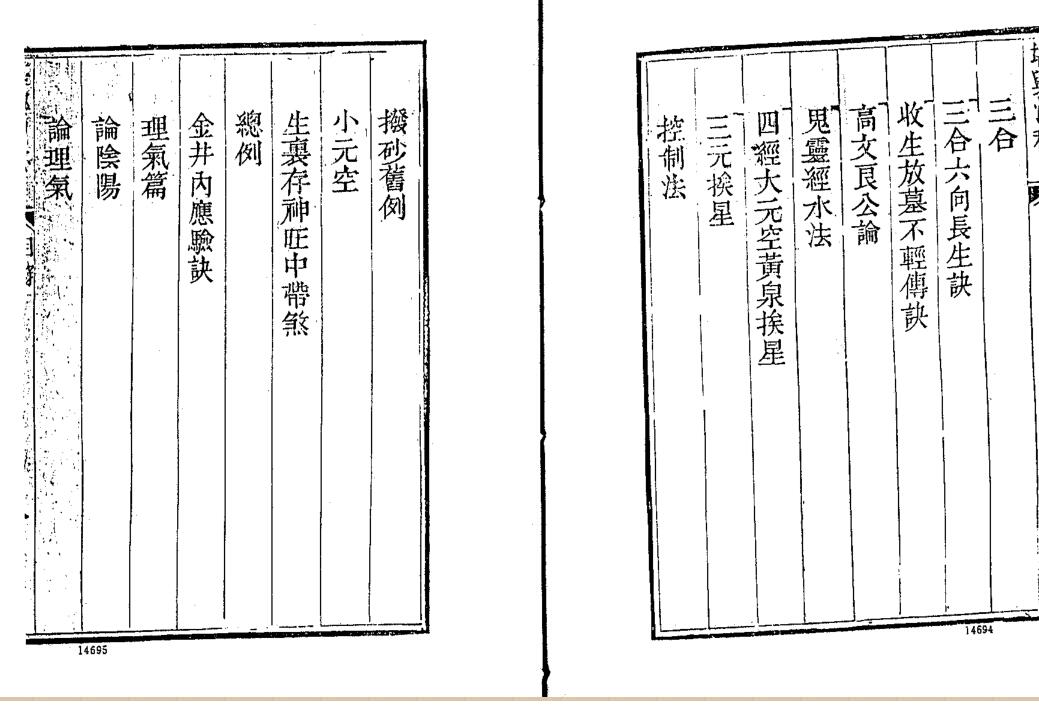 三合
三合六向長生訣
收生放墓不輕傳訣
高文良公論
鬼靈經水法
四經大元空黃泉挨星
三元挨星
控制法
14694
撥砂舊例
小元空
生裏存神旺中帶煞
總例
金井內應驗訣
理氣篇
論陰陽
論理氣
14695